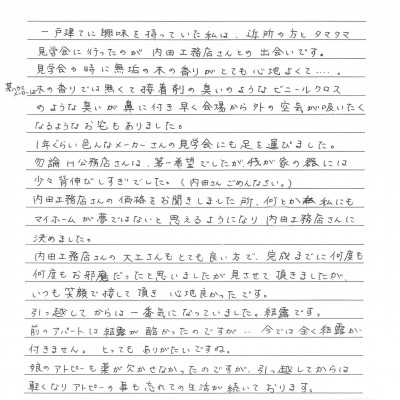 一戸建てに興味を持っていた私は、近所の方とタマタマ
見学会に行ったのが内田工務店さんとの出会いです。
見学会の時に無垢の木の香りがとても心地よくて‥‥。
木の香りでは無くて接着剤の臭いのようなビニールクロス
のような臭いが鼻に付き早く会場から外の空気が吸いたく
なるようなお宅もありました。
1年くらい色んなメーカーさんの見学会にも足を運びました。
勿論H公務店さんは、第一希望でしたが、我が家の器には
少々背伸びしすぎでした。(内田さんごめんなさい。)
内田工務店さんの価格をお聞きしました所、何とか私にも
マイホームが夢ではないと思えるようになり内田工務店さんに
決めました。
内田工務店さんの大工さんもとても良い方で、完成までに何度も
何度もお邪魔だったと思いましたが見させて頂きましたが、
いつも笑顔で接して頂き心地良かったです。
引っ越してからは一番気になっていました。結露です。
前のアパートは結露が酷かったのですが…今では全く結露が
付きません。とってもありがたいですね。
娘のアトピーも薬が欠かせなかったのですが、引っ越してからは
軽くなりアトピーの事も忘れての生活が続いております。